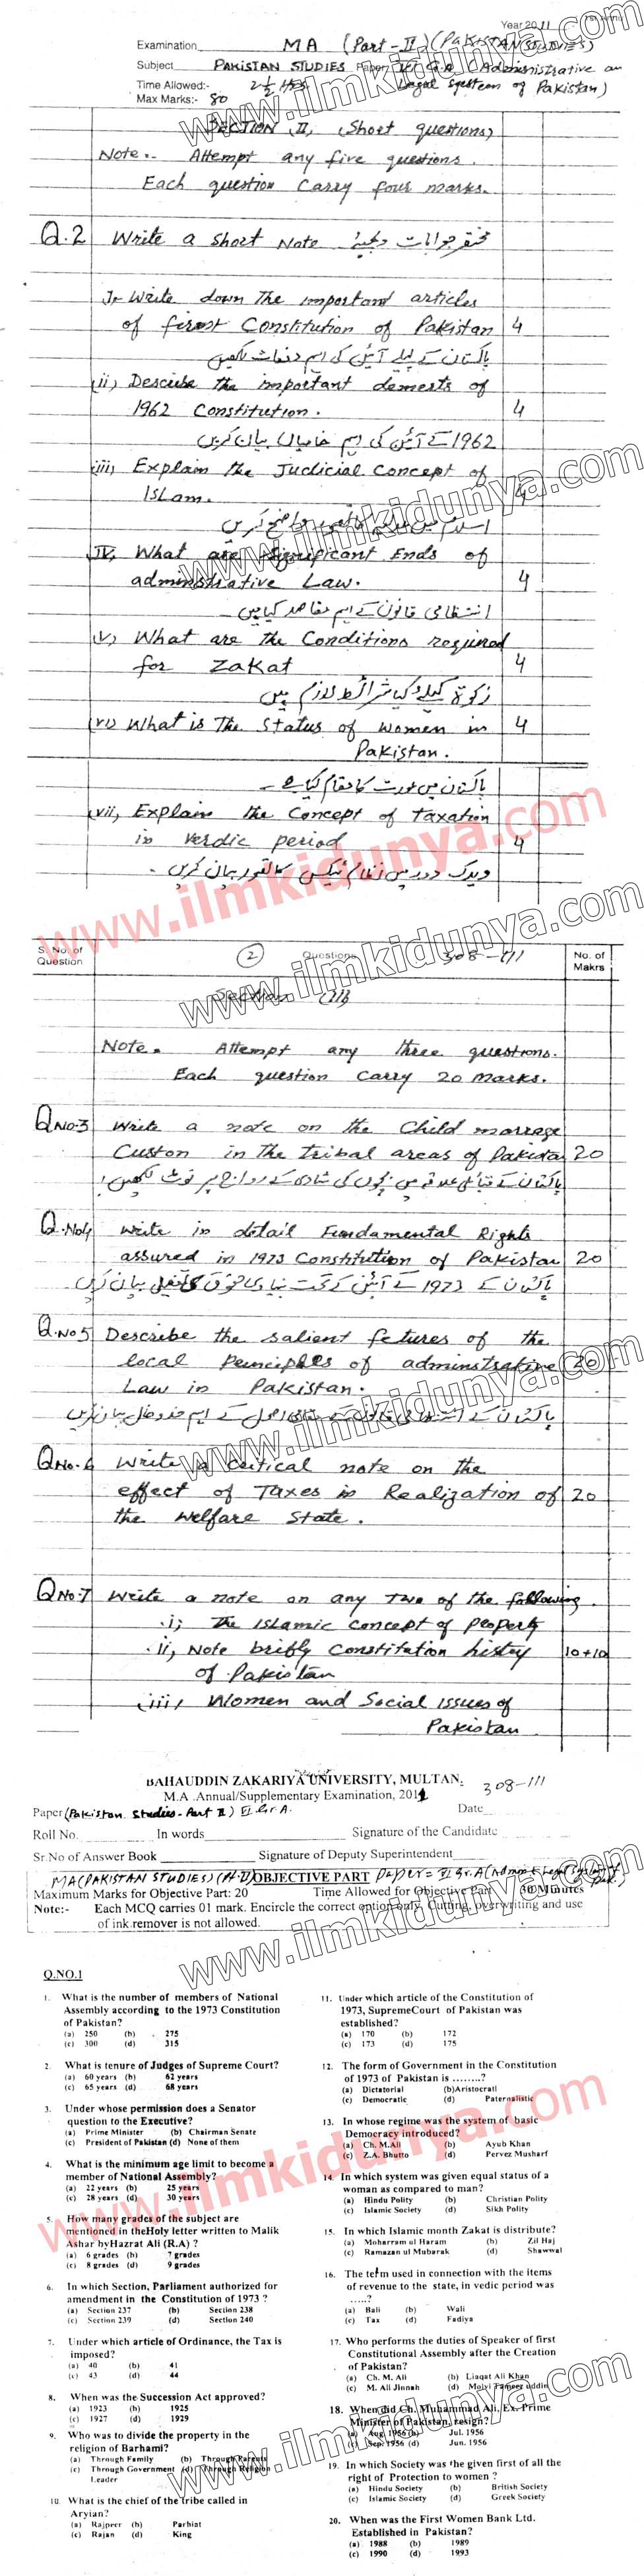 Year 2011
Examination MA (Part-II) (PAKISTAN STUDIES)
Subject PAKISTAN STUDIES Paper VI G.A (Administrative an
Time Allowed:- 2½ Hrs Legal System of Pakistan)
Max Marks:- 80
SECTION II, (Short questions)
Note.- Attempt any five questions.
Each question carry four marks.
Q.2 Write a short Note مختصر جوابات دیجئے
I- Write down the important articles
of first Constitution of Pakistan 4
پاکستان کے پہلے آئین کی اہم دفعات لکھیں
(ii) Describe the important demerits of
1962 Constitution. 4
1962 کے آئین کی اہم خامیاں بیان کریں
iii, Explain the Judicial Concept of
Islam. 4
اسلام میں واضح کریں
IV, What are Significant Ends of
administrative Law. 4
انتظامی قانون کے اہم مقاصد کیا ہیں
(v) What are the Conditions required
for Zakat 4
زکوٰة کیلئے کیا شرائط لازم ہیں
(vi) What is The Status of Women in 4
Pakistan.
پاکستان میں عورت کا مقام کیا ہے۔
vii, Explain the Concept of Taxation
in Verdic period 4
ویدک دور میں نظام ٹیکس کا تصور بیان کریں۔
S. No. of Question
2
Questions
308-111
No. of Makrs
Section III
Note. Attempt any three questions.
Each question carry 20 marks.
Q No.3 Write a note on the Child marrage
Custon in the tribal areas of Pakistan 20
پاکستان کے قبائلی علاقہ میں بچوں کی شادی کے رواج پر نوٹ لکھیں
Q.No4 Write in detail Fundamental Rights
assured in 1973 Constitution of Pakistan 20
پاکستان کے 1973 کے آئین کے تحت بنیادی حقوق کی تفصیل بیان کریں
Q.No5 Describe the salient fetures of the
local Peinciples of adminstrative 20
Law in Pakistan.
پاکستان کے انتظامی قانون کے مقامی اصول کے اہم خدوخال بیان کریں
Q No.6 Write a Critical note on the
effect of Taxes in Realization of 20
the Welfare State.
Q No:7 Write a note on any Two of the following.
i; The Islamic concept of Peoperty
ii, Note briefly Constitution histey 10+10
of Pakistan
(iii, Women and Social issues of
Pakistan
BAHAUDDIN ZAKARIYA UNIVERSITY, MULTAN.
M.A .Annual/Supplementary Examination, 2011 308-111
Paper (Pakistan Studies-Part II) VI Gr.A. Date
Roll No. In words Signature of the Candidate
Sr.No of Answer Book Signature of Deputy Superintendent
MA(PAKISTAN STUDIES) (P-II) OBJECTIVE PART Paper = VI Gr.A (Admin & Legal System of Pak.)
Maximum Marks for Objective Part: 20 Time Allowed for Objective Part 30 Minutes
Note:- Each MCQ carries 01 mark. Encircle the correct option only. Cutting, overwriting and use
of ink remover is not allowed.
Q.NO.1
1. What is the number of members of National
Assembly according to the 1973 Constitution
of Pakistan?
(a) 250 (b) 275
(c) 300 (d) 315
2. What is tenure of Judges of Supreme Court?
(a) 60 years (b) 62 years
(c) 65 years (d) 68 years
3. Under whose permission does a Senator
question to the Executive?
(a) Prime Minister (b) Chairman Senate
(c) President of Pakistan (d) None of them
4. What is the minimum age limit to become a
member of National Assembly?
(a) 22 years (b) 25 years
(c) 28 years (d) 30 years
5. How many grades of the subject are
mentioned in theHoly letter written to Malik
Ashar byHazrat Ali (R.A) ?
(a) 6 grades (b) 7 grades
(c) 8 grades (d) 9 grades
6. In which Section, Parliament authorized for
amendment in the Constitution of 1973 ?
(a) Section 237 (b) Section 238
(c) Section 239 (d) Section 240
7. Under which article of Ordinance, the Tax is
imposed?
(a) 40 (b) 41
(c) 43 (d) 44
8. When was the Succession Act approved?
(a) 1923 (b) 1925
(c) 1927 (d) 1929
9. Who was to divide the property in the
religion of Barhami?
(a) Through Family (b) Through Parents
(c) Through Government (d) Through Religion
Leader
10. What is the chief of the tribe called in
Aryian?
(a) Rajpeer (b) Parhiat
(c) Rajan (d) King
11. Under which article of the Constitution of
1973, SupremeCourt of Pakistan was
established?
(a) 170 (b) 172
(c) 173 (d) 175
12. The form of Government in the Constitution
of 1973 of Pakistan is ........?
(a) Dictatorial (b)Aristocratl
(c) Democratic (d) Paternalistic
13. In whose regime was the system of basic
Democracy introduced?
(a) Ch. M.Ali (b) Ayub Khan
(c) Z.A. Bhutto (d) Pervez Musharf
14. In which system was given equal status of a
woman as compared to man?
(a) Hindu Polity (b) Christian Polity
(c) Islamic Society (d) Sikh Polity
15. In which Islamic month Zakat is distribute?
(a) Moharram ul Haram (b) Zil Haj
(c) Ramazan ul Mubarak (d) Shawwal
16. The term used in connection with the items
of revenue to the state, in vedic period was
.....?
(a) Bali (b) Wali
(c) Tax (d) Fadiya
17. Who performs the duties of Speaker of first
Constitutional Assembly after the Creation
of Pakistan?
(a) Ch. M. Ali (b) Liaqat Ali Khan
(c) M. Ali Jinnah (d) Molvi Tameer uddin
18. When did Ch. Muhammad Ali, Ex. Prime
Minister of Pakistan, resign?
(a) Aug. 1956 (b) Jul. 1956
(c) Sep. 1956 (d) Jun. 1956
19. In which Society was the given first of all the
right of Protection to women ?
(a) Hindu Society (b) British Society
(c) Islamic Society (d) Greek Society
20. When was the First Women Bank Ltd.
Established in Pakistan?
(a) 1988 (b) 1989
(c) 1990 (d) 1993
www.ilmkidunya.com